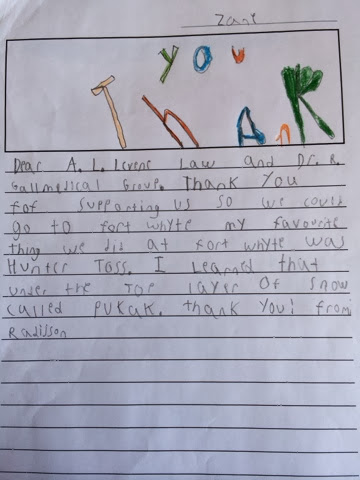 YOU
ThAnK
Dear A. L. Law and Dr. R.
Gallmedical Group. Thank You
for supporting us so we could
go to fort whyte my favourite
thing we did at fort whyte was
Hunter Toss. I Learned that
under the Top Layer Of Snow
called PUKaK. thank you! from
Radisson